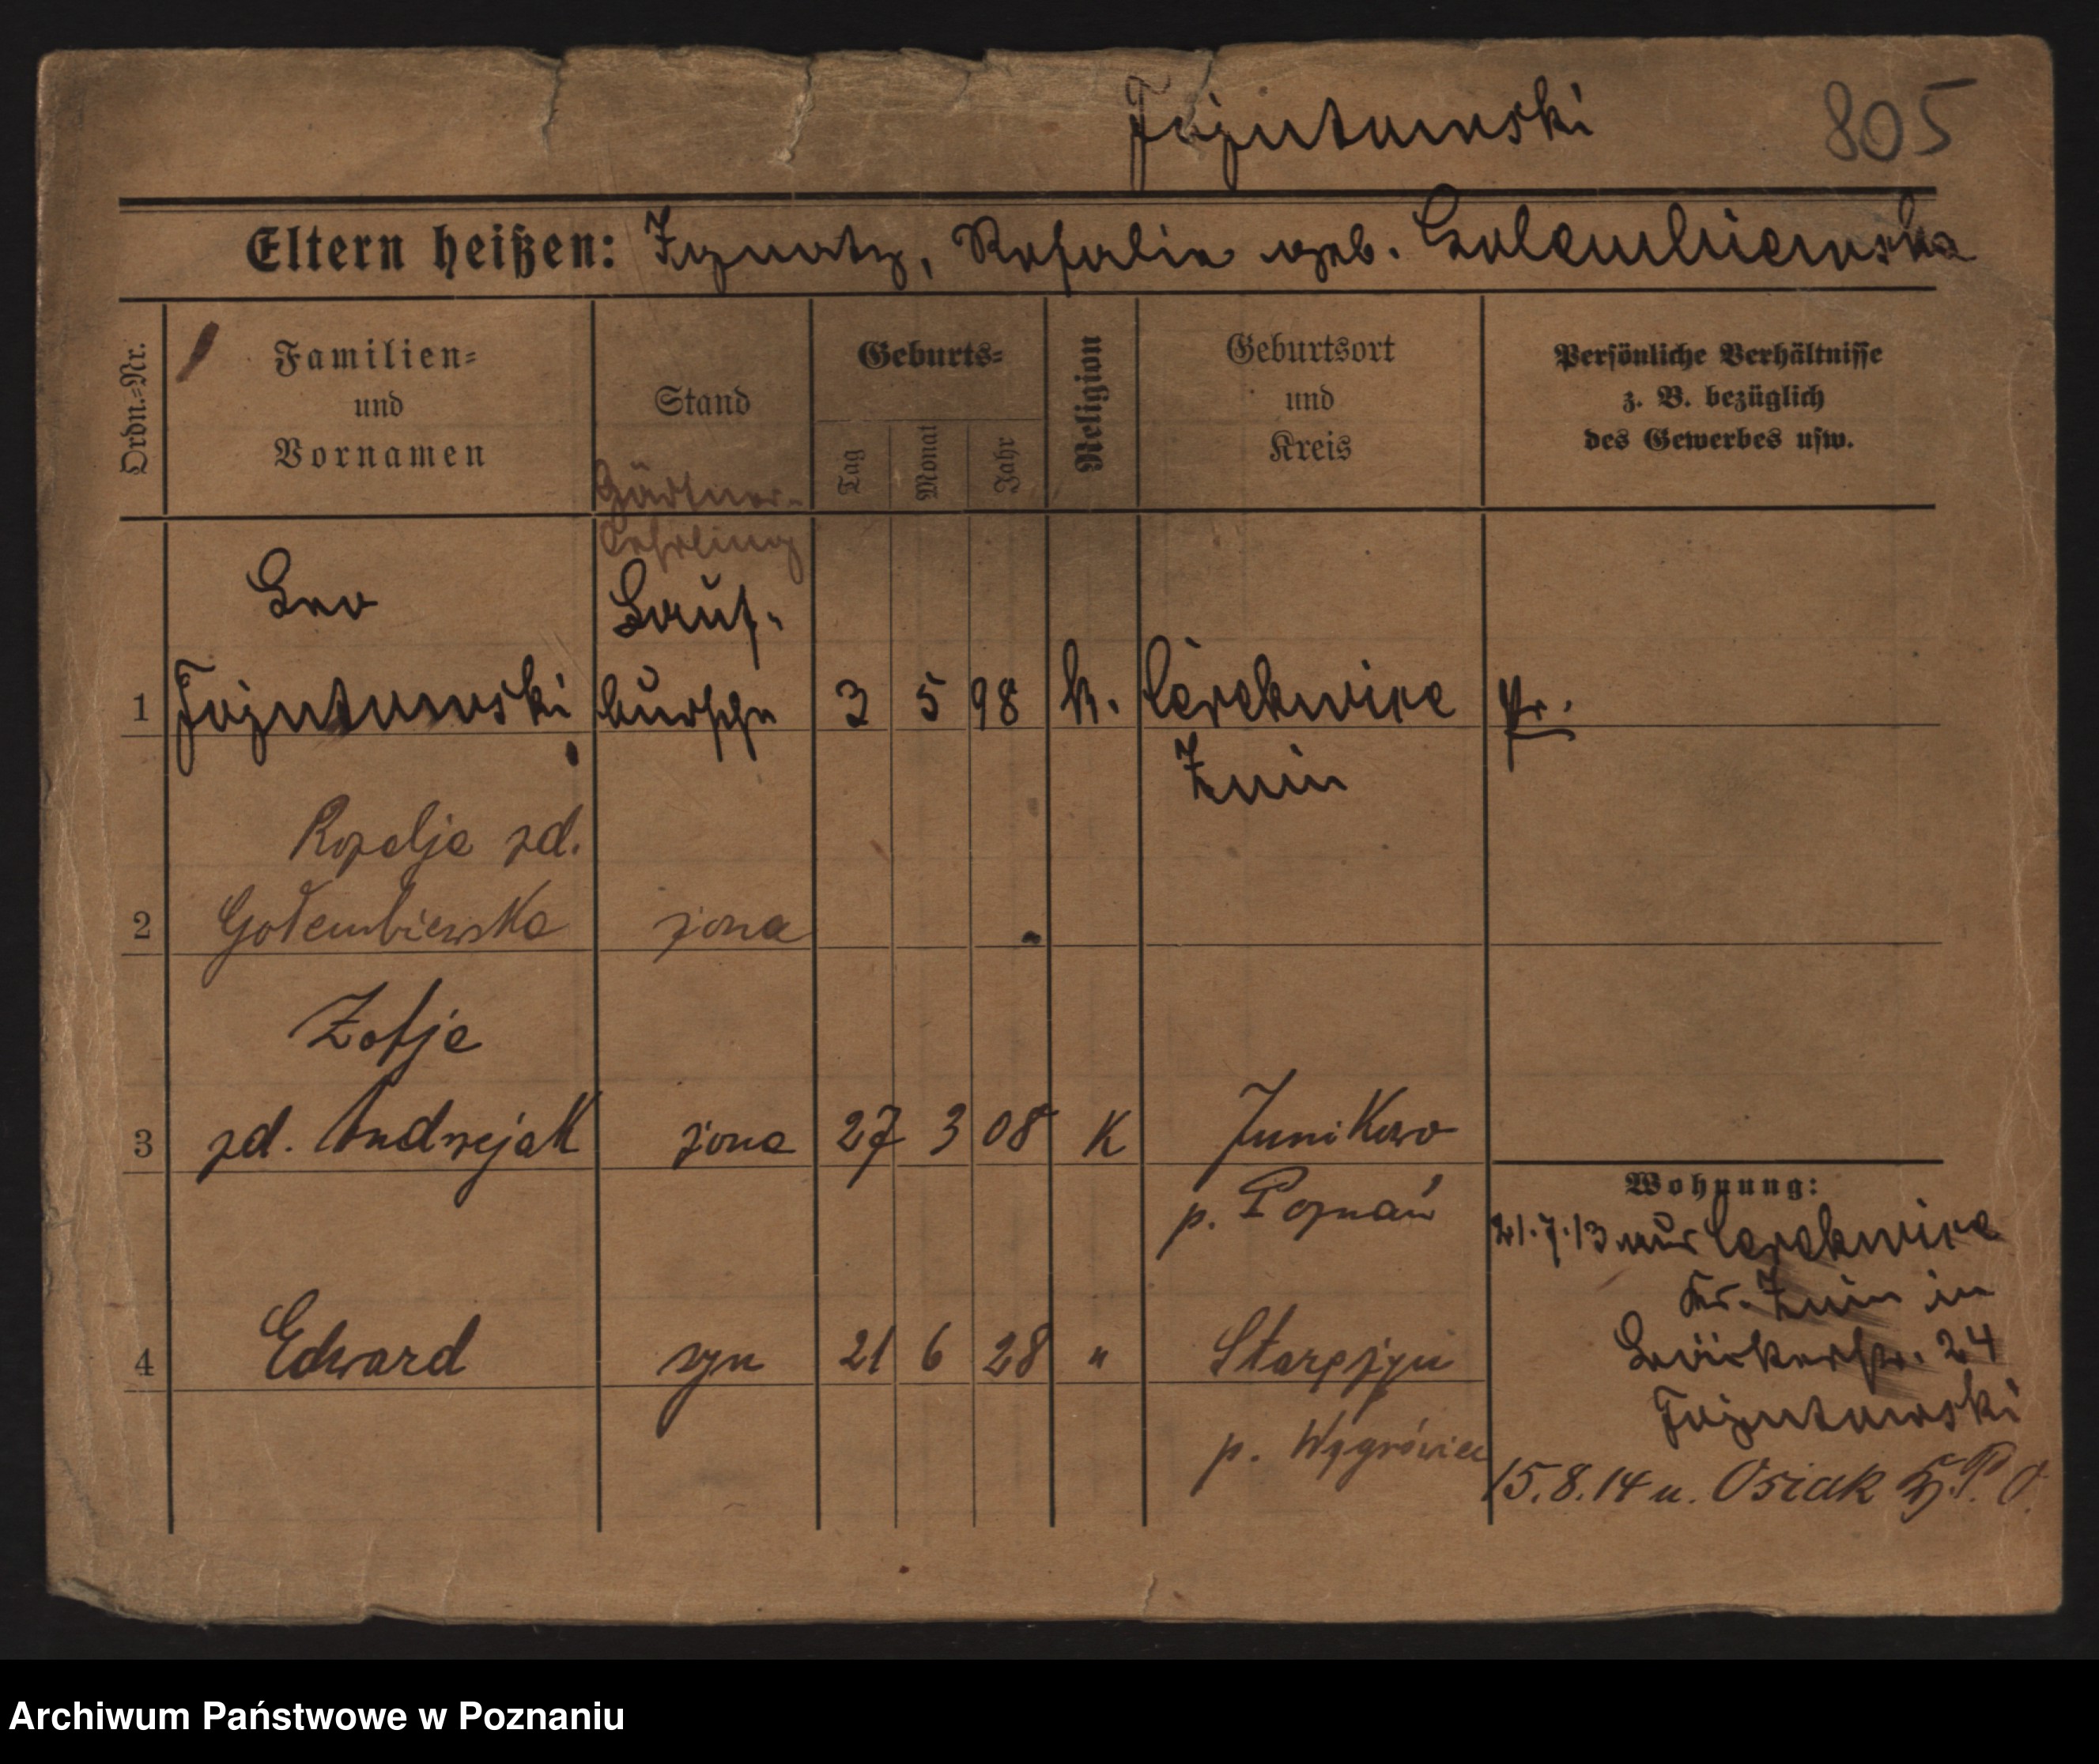 Fajntowski 805
Eltern heißen: Ignatz, Rosalia geb. Golembiewska
Ordn.=Nr.
Familien=
und
Vornamen
Stand
Geburts=
Tag
Monat
Jahr
Religion
Geburtsort
und
Kreis
Persönliche Verhältnisse
z. B. bezüglich
des Gewerbes usw.
Gärtner-
Lehrling
Leo Lauf-
1 bursche 3 5 98 k. Cerekwica Pr.
Znin
Rozalja zd.
2 Gołembiewska żona
Zofja
3 zd. Andrzejak żona 27 3 08 K Junikowo
p. Poznań
4 Edward syn 21 6 28 " Starężyn
p. Wągrówiec
Wohnung:
21.7.13 aus Cerekwica
Kr. Znin in
24
15.8.14 u. Osiak
Archiwum Państwowe w Poznaniu